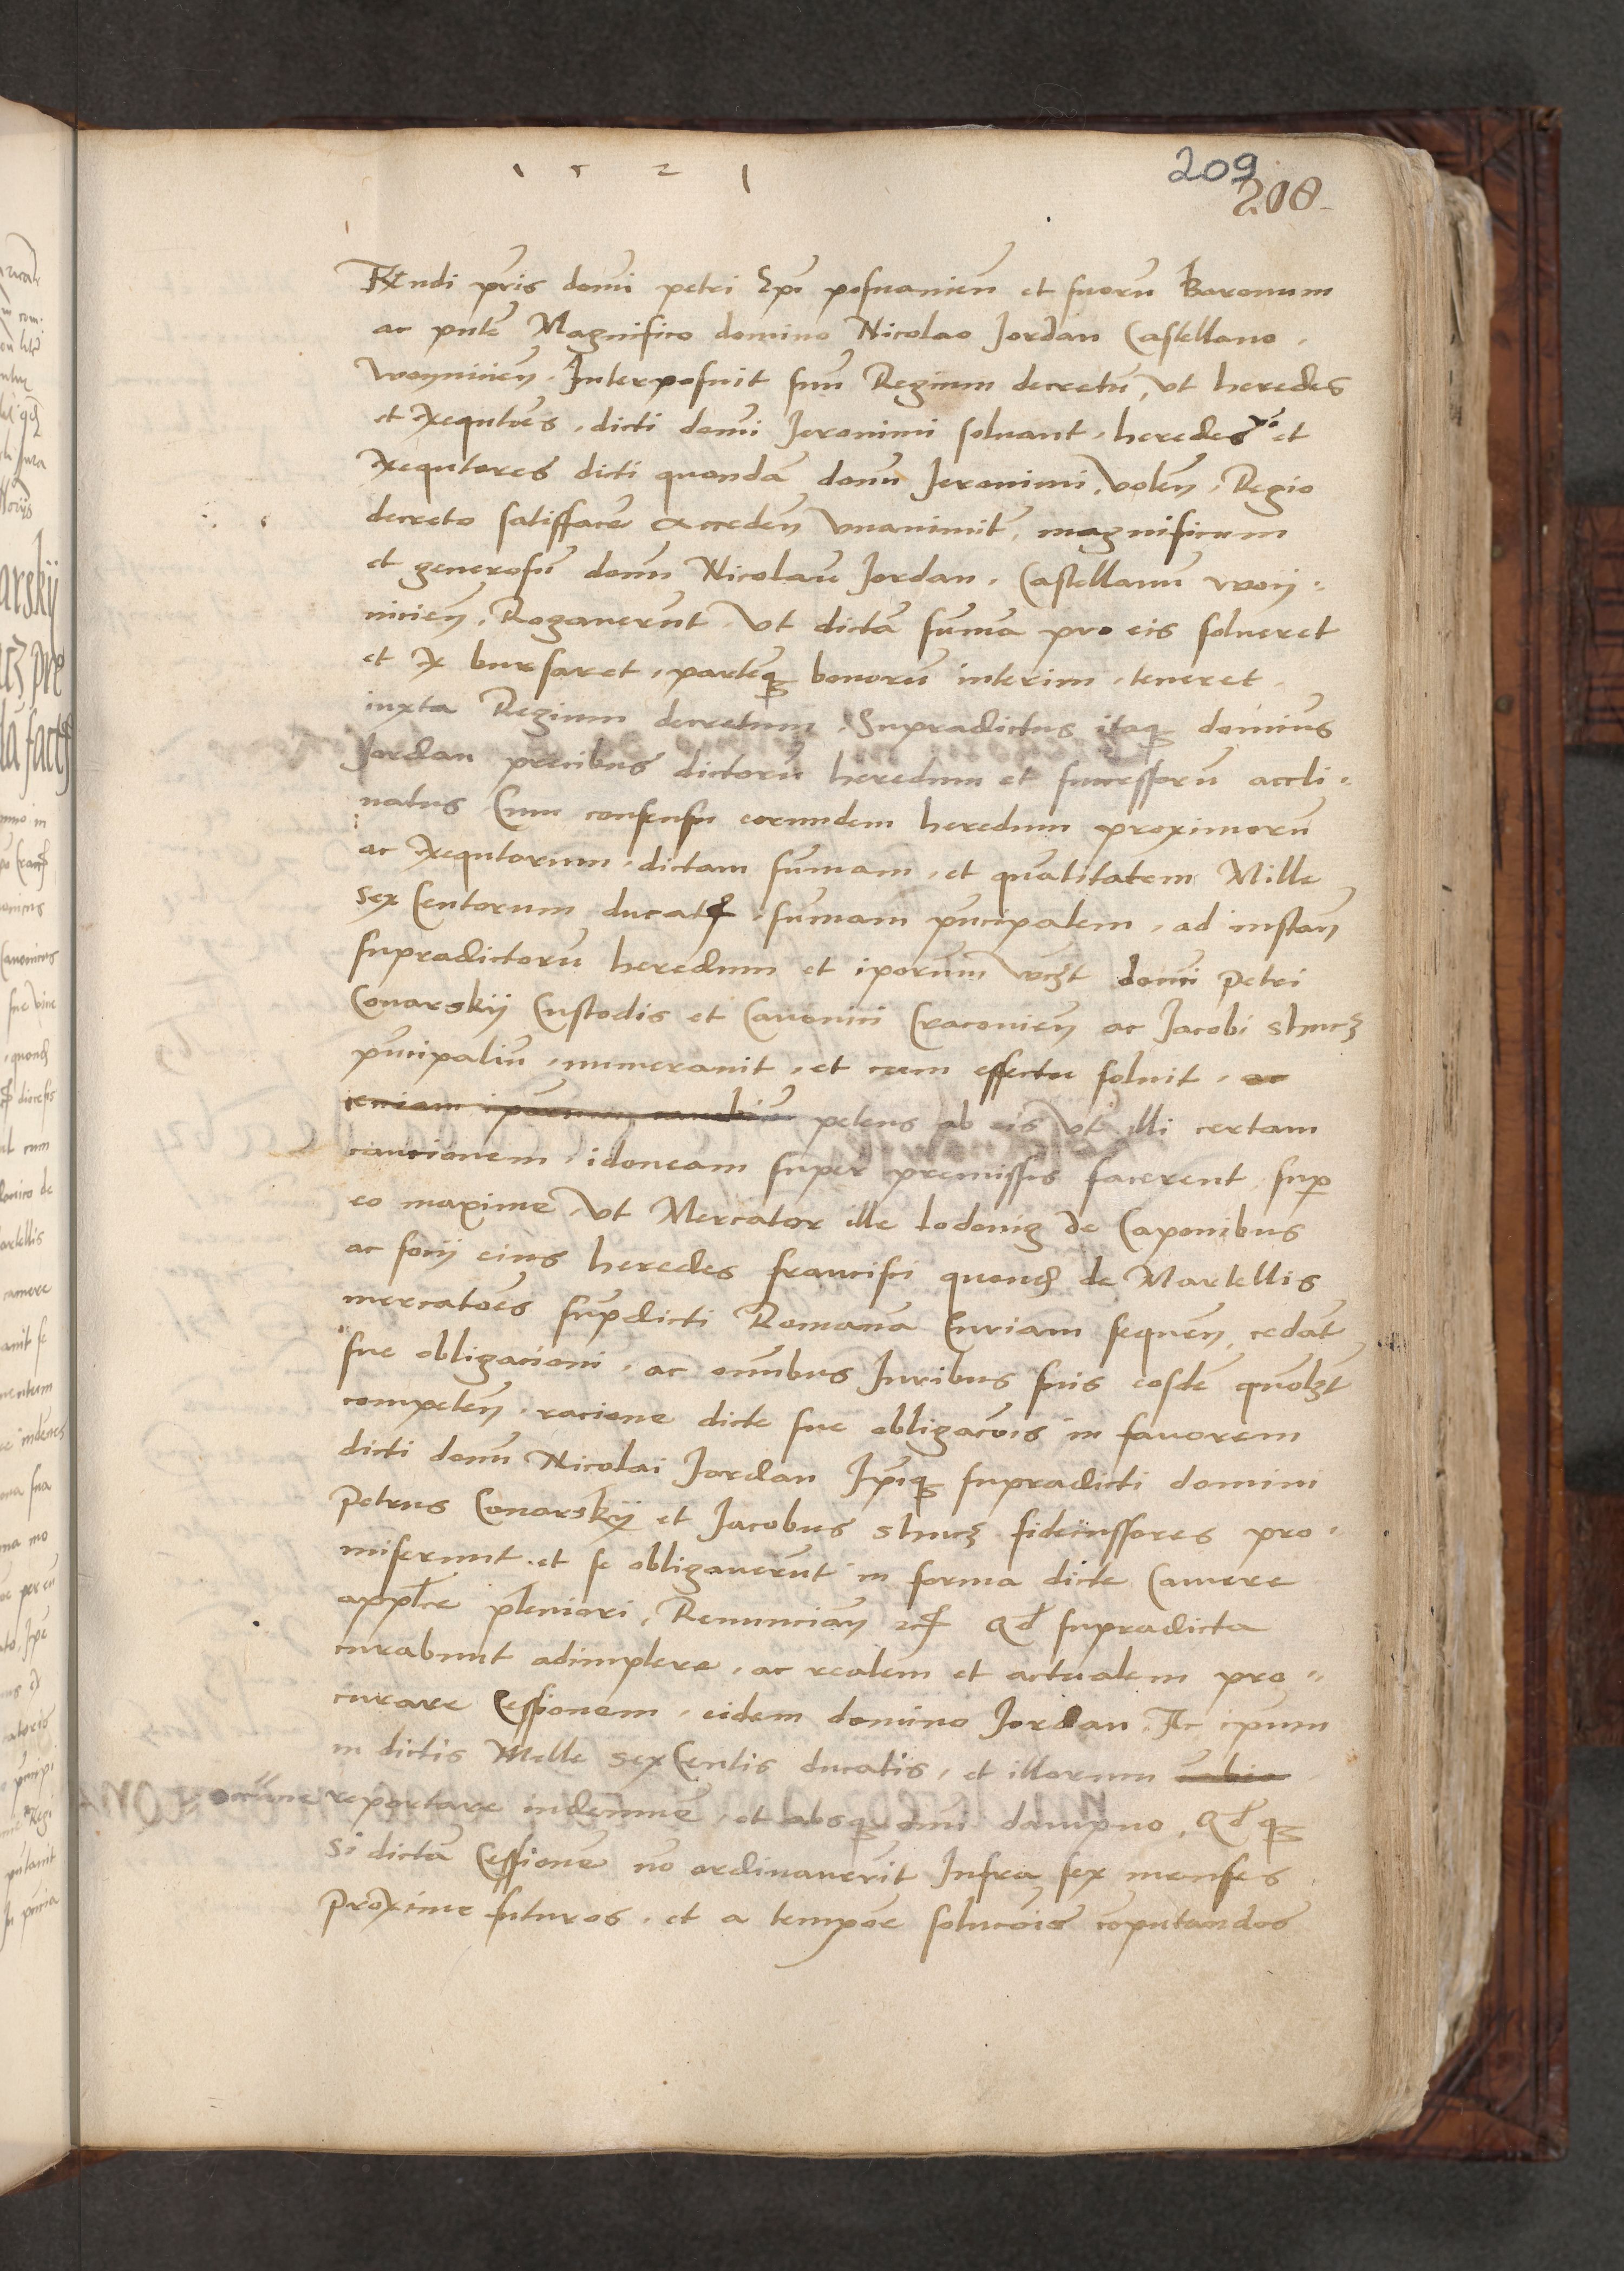 1 5 2 1
209
208
Rndi pris domi petri Epi posnanien et suoru Baronum
ac pnte Magnifico domino Nicolao Jordan Castellano
woynicien. Interposuit suu Regium decretu, vt heredes
et exequtores, dicti domi Jeronimi soluant, heredes vo et
exequtores dicti quonda domi Jeronimi, volen, Regio
decreto satisface acceden vnanimit, magnificum
et generosu domu Nicolau Jordan, Castellanu woy-
nicien, Rogauerunt, vt dicta suma pro eis solueret
et ex bursaret, parteq bonoru interim, teneret
iuxta Regium decretum, Supradictus itaq dominus
Jordan precibus dictoru heredum et successoru accli-
natus Cum consensu eorumdem heredum proximoru
ac exequtorum, dictam sumam, et quatitatem Mille
sex Centorum ducat, sumam pncipalem, ad instan
supradictoru heredum et iporum vczt domi Petri
Conarskij Custodis et Canonici Cracouien ac Jacobi shucz
pncipaliu, numerauit, et cum effectu soluit, ac
petens ab eis vt illi certam
caucionem, idoneam super premissis facerent, sup
eo maxime, vt Mercator ille lodouig de Caponibus
ac socij eius heredes francisci quond de Martellis
mercatoes supdicti Romana Curiam sequen, cedat
sue obligacioni, ac omibus Juribus suis eosde quolzt
competen, racione dicte sue obligacois in fauorem
dicti domi Nicolai Jordan Ipiq supradicti domini
Petrus Conarskij et Jacobus shucz fideiussores pro-
miserunt, et se obligauerut in forma dicte Camere
applice pleniori, Renuncian etc qd supradicta
curabunt adimplere, ac realem et actualem pro-
curare Cessionem, eidem domino Jordan, Ac ipum
in dictis Mille sex Centis ducatis, et illorum
occasione reportare indemne, et absq omi dampno, qd q
Si dicta Cessione no ordinauerit Infra sex menses
proxime futuros, et a tempore solucois coputandos